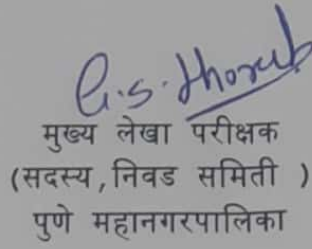 मुख्य लेखा परीक्षक
(सदस्य, निवड समिती )
पुणे महानगरपालिका